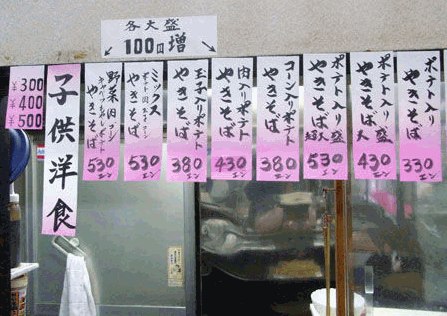 各大盛
100円増
ポテト入り
やきそば
330
エン
ポテト入り
やきそば 大盛
430
エン
ポテト入り
やきそば 超大盛
530
エン
コーン入りポテト
やきそば
380
エン
肉入りポテト
やきそば
430
エン
玉子入りポテト
やきそば
380
エン
ミックス
やきそば
530
エン
野菜肉
やきそば
530
エン
子供洋食
¥300
¥400
¥500